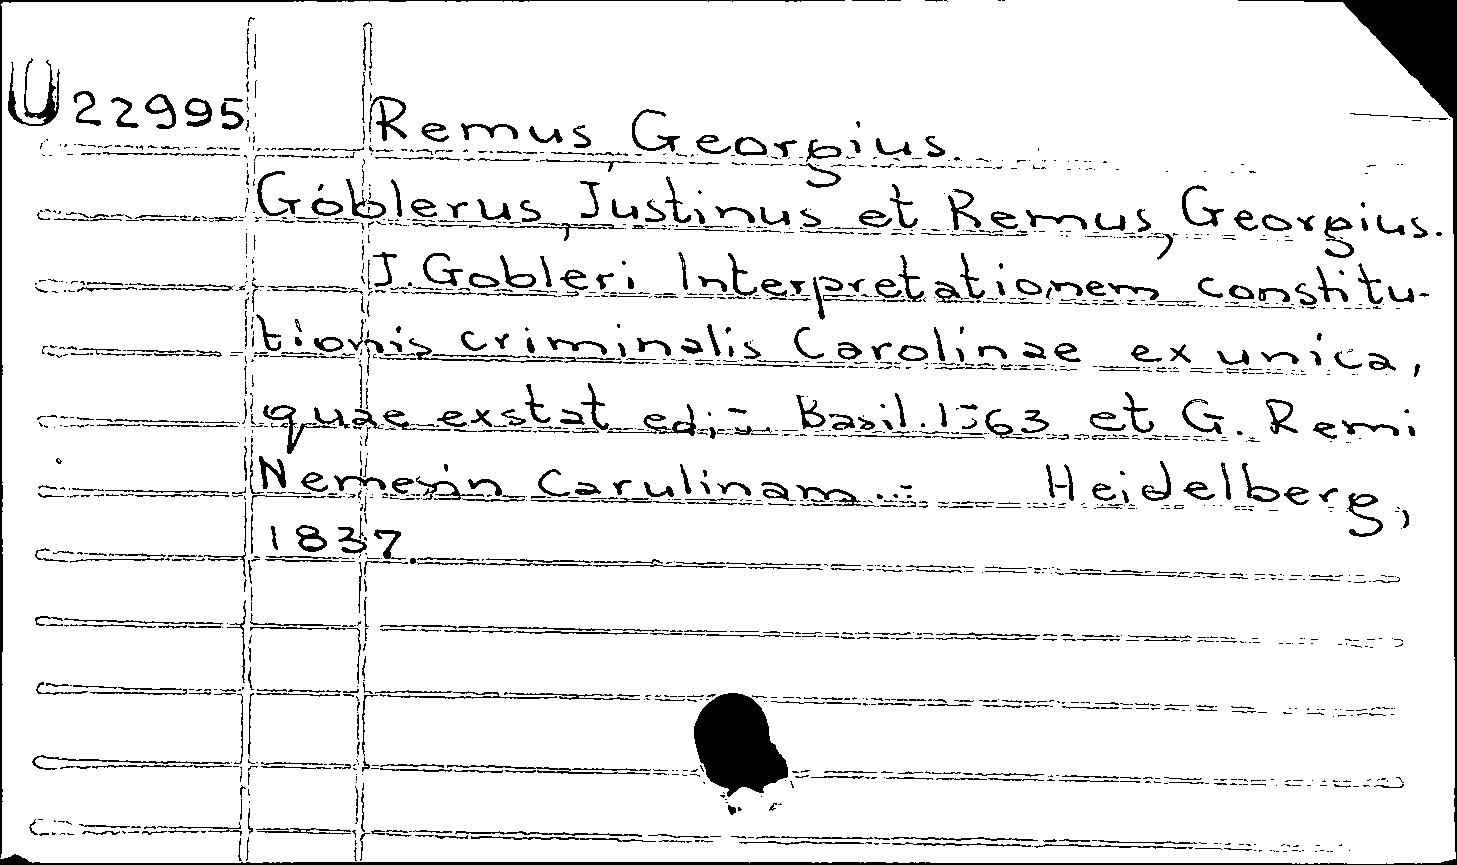 U 22995 Remus, Georgius.
Göblerus, Justinus et Remus, Georgius.
J. Gobleri Interpretationem constitu-
tionis criminalis Carolinae ex unica,
quae exstat ed. Basil. 1563 et G. Remi
Nemesin Carulinam ... Heidelberg,
1837.